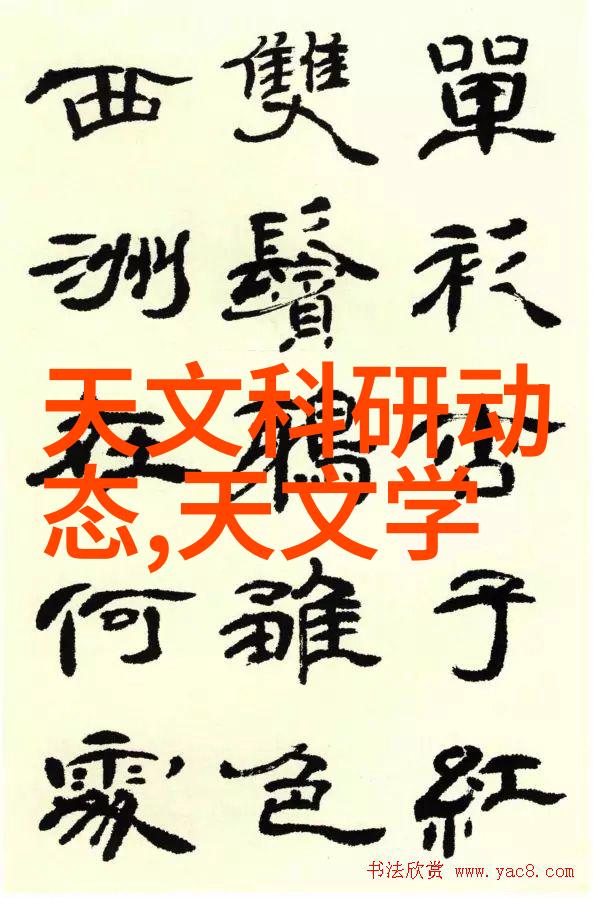 單衫杏子紅
雙鬢鴉雛色
西洲在何處
天文科研动
态,天文学
书法欣赏 www.yac8.com